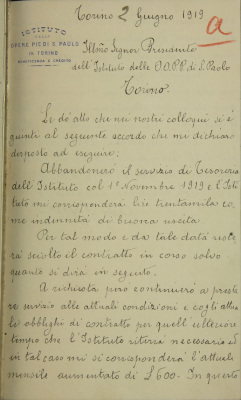 Torino 2 Giugno 1919
a
ISTITUTO
DELLE
OPERE PIE DI S. PAOLO
IN TORINO
BENEFICENZA E CREDITO
Ill.mo Signor Presidente
dell'Istituto delle OO.PP. di S. Paolo
Torino
Le do atto che nei nostri colloqui si è
giunti al seguente accordo che mi dichiaro
disposto ad eseguire:
Abbandonerò il servizio di Tesoreria
dell'Istituto col 1° Novembre 1919 e l'Isti
tuto mi corrisponderà lire trentamila co
me indennità di buona uscita.
Per tal modo e da tale data reste
rà sciolto il contratto in corso salvo
quanto si dirà in seguito.
A richiesta però continuerò a presta
re servizio alle attuali condizioni e cogli attua
li obblighi di contratto per quell'ulteriore
tempo che l'Istituto riterrà necessario ed
in tal caso mi si corrisponderà l'attuale
mensile aumentato di £ 600 - In questo